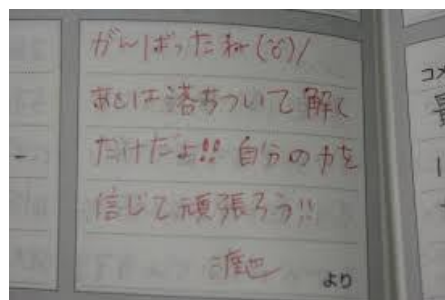 がんばったね(^o^)/
あとは落ちついて解く
だけだよ!! 自分の力を
信じて頑張ろう!!
より
コメ